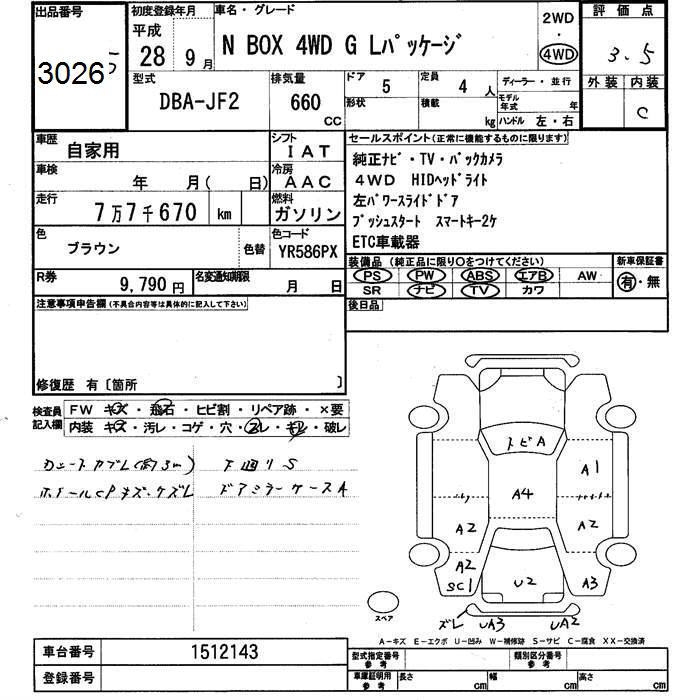 出品番号 初度登録年月 車名・グレード 2WD・4WD 評価点
3026
平成
28 9月 N BOX 4WD G Lパッケージ 3.5
型式 排気量 ドア 5 定員 4人 ディーラー・並行 外装 内装
DBA-JF2 660 CC 形状 積載 kg モデル年式 年 C
ハンドル 左・右
車歴 自家用 シフト IAT セールスポイント(正常に機能するものに限ります)
車検 年 月( 日) 冷房 AAC 純正ナビ・TV・バックカメラ
走行 7万7千670 km 燃料 ガソリン 4WD HIDヘッドライト
左パワースライドドア
色 ブラウン 色替 色コード YR586PX プッシュスタート スマートキー2ケ
ETC車載器
R券 9,790円 名変通知期限 月 日 装備品(純正品に限り○をつけてください) 新車保証書
PS PW ABS エアB AW 有・無
SR ナビ TV カワ
注意事項申告欄(不具合内容等は具体的に記入して下さい) 後日品
修復歴 有〔箇所 〕
検査員記入欄 FW キズ・飛石・ヒビ割・リペア跡・×要
内装 キズ・汚レ・コゲ・穴・スレ・キレ・破レ
下廻りS
ホイールCPキズ・ケズレ ドアミラーケースA
トビA
A1
A4
A2 A2
A2
SC1 U2 A3
ズレ UA3 UA2
スペア
A-キズ E-エクボ U-凹み W-補修跡 S-サビ C-腐食 XX-交換済
車台番号 1512143 型式指定番号 参考 類別区分番号 参考
登録番号 車庫証明用 参考 長さ cm 幅 cm 高さ cm